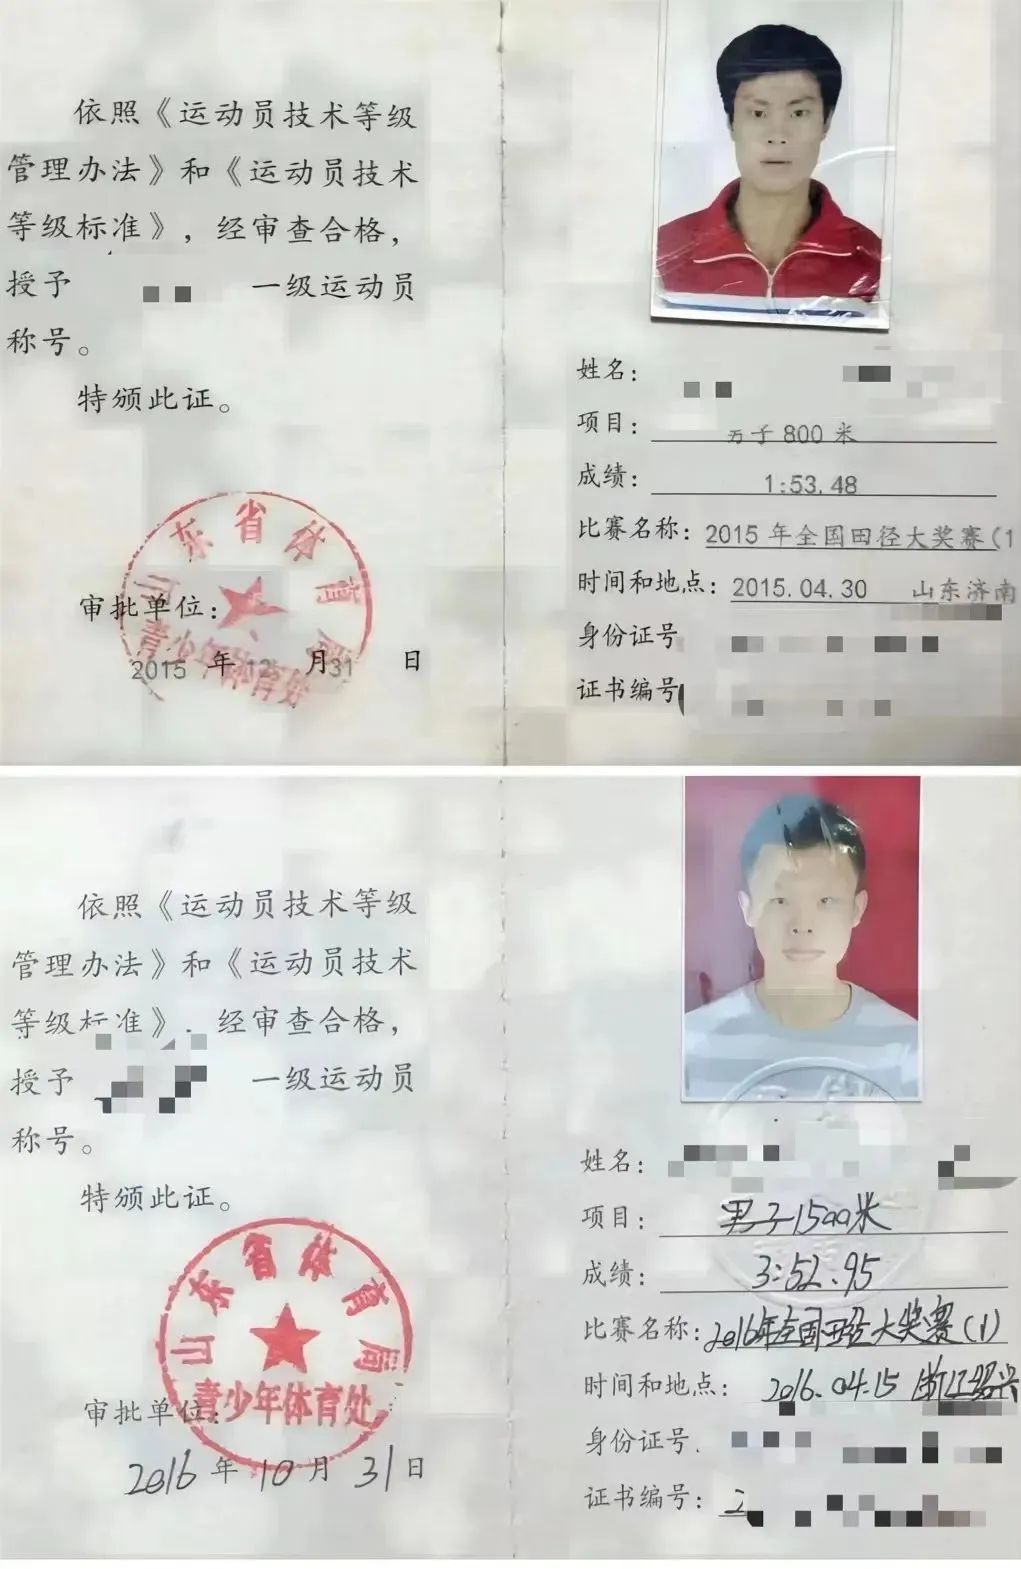 依照《运动员技术等级
管理办法》和《运动员技术
等级标准》，经审查合格，
授予 一级运动员
称号。
特颁此证。
山东省体育局
青少年体育处
审批单位：
2015 年 12 月 31 日
姓名：
项目： 男子 800 米
成绩： 1:53.48
比赛名称： 2015 年全国田径大奖赛(1
时间和地点： 2015.04.30 山东济南
身份证号
证书编号
依照《运动员技术等级
管理办法》和《运动员技术
等级标准》，经审查合格，
授予 一级运动员
称号。
特颁此证。
山东省体育局
青少年体育处
审批单位：
2016 年 10 月 31 日
姓名：
项目： 男子1500米
成绩： 3:52.95
比赛名称： 2016年全国田径大奖赛(1)
时间和地点： 2016.04.15 浙江绍兴
身份证号
证书编号： 2